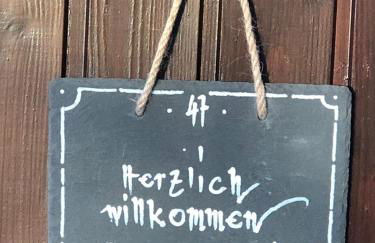 · 47 ·
Herzlich
willkommen